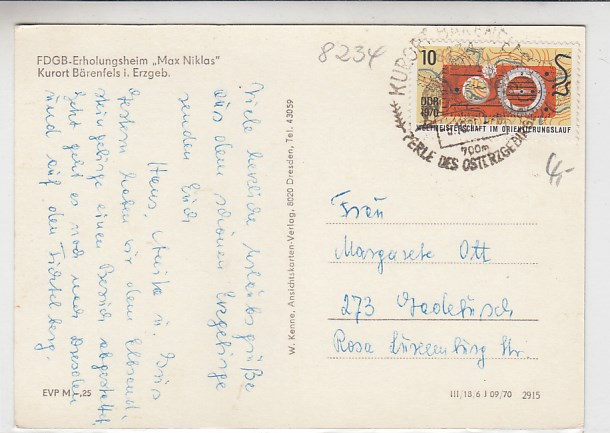 FDGB-Erholungsheim „Max Niklas"
Kurort Bärenfels i. Erzgeb.
8234
KURORT BÄRENFELS
PERLE DES OSTERZGEBIRGES
700m
10
DDR
1970
WELTMEISTERSCHAFT IM ORIENTIERUNGSLAUF
4,-
Viele herzliche Urlaubsgrüße
aus dem schönen Erzgebirge
senden Euch
Hans, Anita u.
Gestern haben wir dem Elbsand-
steingebirge einen Besuch abgestattet,
jetzt geht es noch nach Dresden
und auf den Fichtelberg.
W. Kenne, Ansichtskarten-Verlag, 8020 Dresden, Tel. 43059
Frau
Margarete Ott
273 Gadebusch
Rosa Luxemburg Str.
EVP M -,25
III/18/6 J 09/70 2915